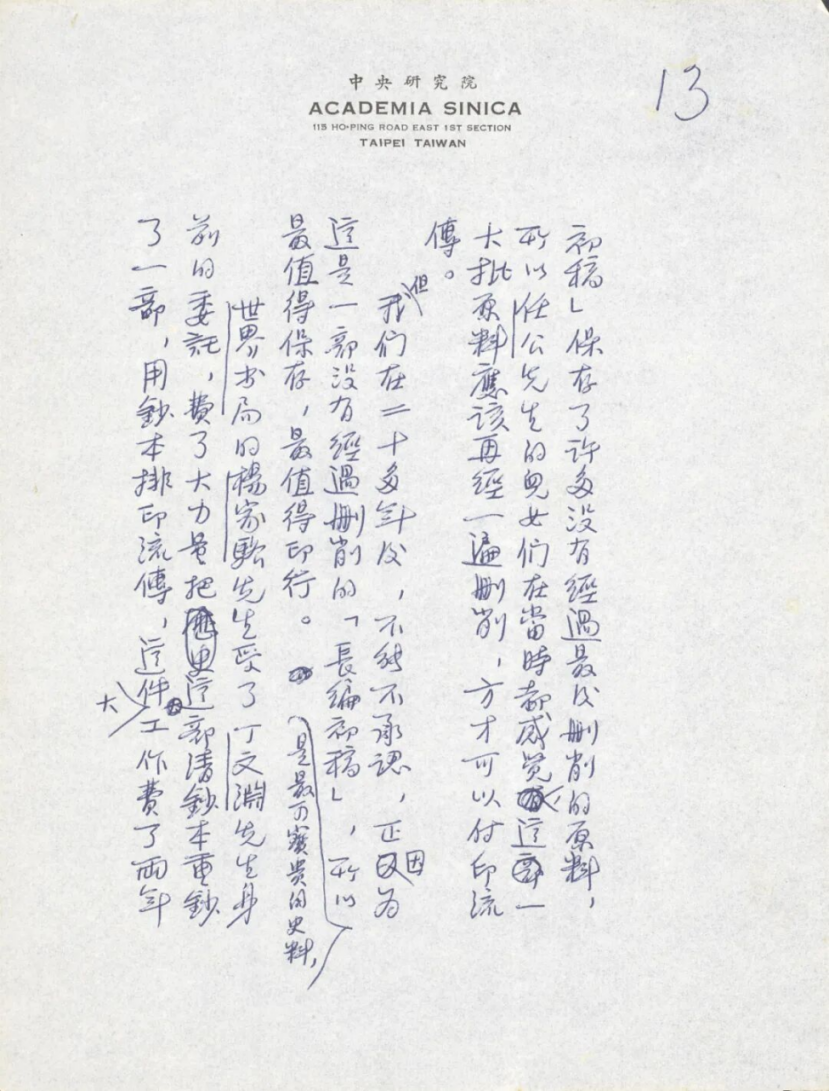 中央研究院
ACADEMIA SINICA
115 HO-PING ROAD EAST 1ST SECTION
TAIPEI TAIWAN
13
初稿」保存了許多沒有經過最後刪削的原料，
所以任公先生的兒女們在當時都感覺這一
大批原料應該再經一遍刪削，方才可以付印流
傳。
但我們在二十多年後，不能不承認，正因為
這是一部沒有經過刪削的「長編初稿」，所以
是最可寶貴的史料，
最值得保存，最值得印行。
世界书局的楊家駱先生受了丁文淵先生身
前的委託，費了大力量把這部清鈔本重鈔
了一部，用鈔本排印流傳，這件大工作費了兩年